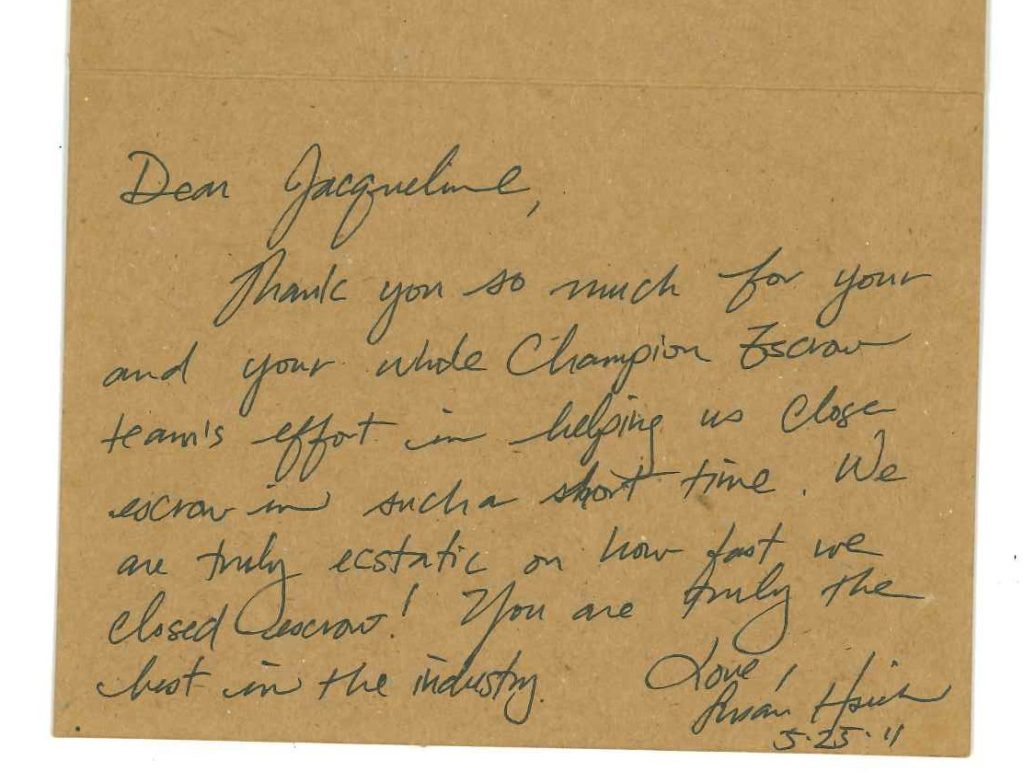 Dear Jacqueline,
Thank you so much for your
and your whole Champion Escrow
team's effort in helping us close
escrow in such a short time. We
are truly ecstatic on how fast we
closed escrow! You are truly the
best in the industry.
Love,
Susan Hsieh
5.25.11